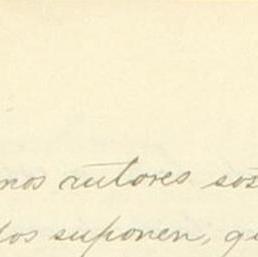 nos autores sos
dos suponen, qu